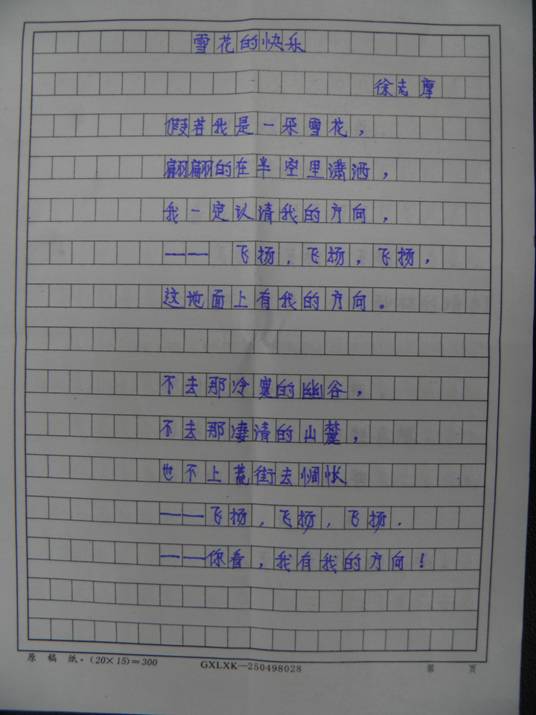 雪花的快乐
徐志摩
假若我是一朵雪花，
翩翩的在半空里潇洒，
我一定认清我的方向，
——飞扬，飞扬，飞扬，
这地面上有我的方向。
不去那冷寞的幽谷，
不去那凄清的山麓，
也不上荒街去惆怅
——飞扬，飞扬，飞扬．
——你看，我有我的方向！
原稿纸·(20×15)=300 GXLXK—250498028 第 页